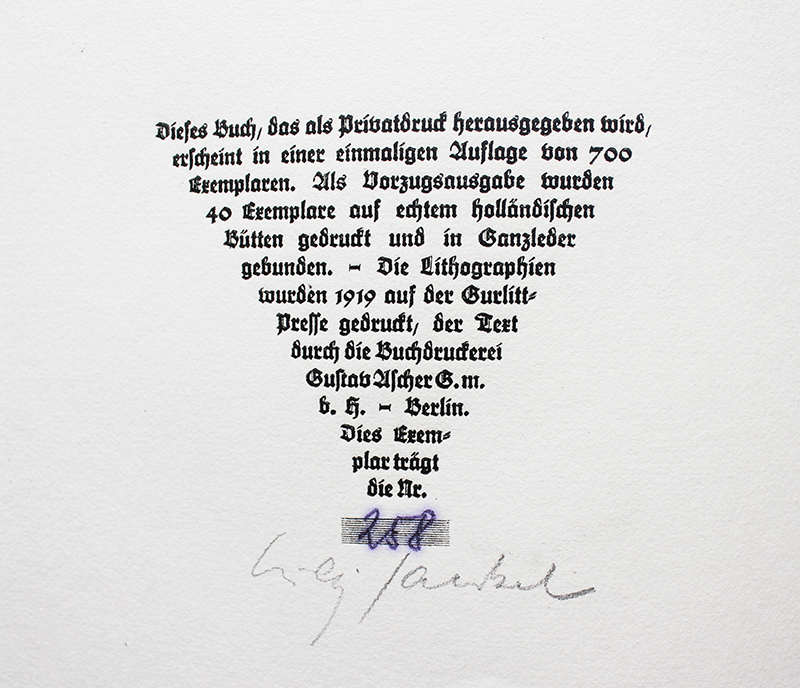 Dieses Buch, das als Privatdruck herausgegeben wird,
erscheint in einer einmaligen Auflage von 700
Exemplaren. Als Vorzugsausgabe wurden
40 Exemplare auf echtem holländischen
Bütten gedruckt und in Ganzleder
gebunden. - Die Lithographien
wurden 1919 auf der Gurlitt-
Presse gedruckt, der Text
durch die Buchdruckerei
Gustav Ascher G. m.
b. H. - Berlin.
Dies Exem-
plar trägt
die Nr.
258
Willy Jaeckel